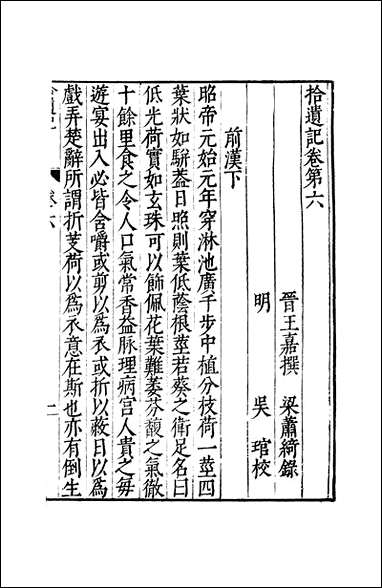 拾遺記卷第六
晉王嘉撰　梁蕭綺錄
明　吳琯校
前漢下
昭帝元始元年穿淋池廣千步中植分枝荷一莖四
葉狀如駢葢日照則葉低蔭根莖若葵之衛足名曰
低光荷實如玄珠可以飾佩花葉難萎芬馥之氣徹
十餘里食之令人口氣常香益脉理病宮人貴之每
遊宴出入必皆含嚼或剪以為衣或折以蔽日以為
戲弄楚辭所謂折芰荷以為衣意在斯也亦有倒生
卷六